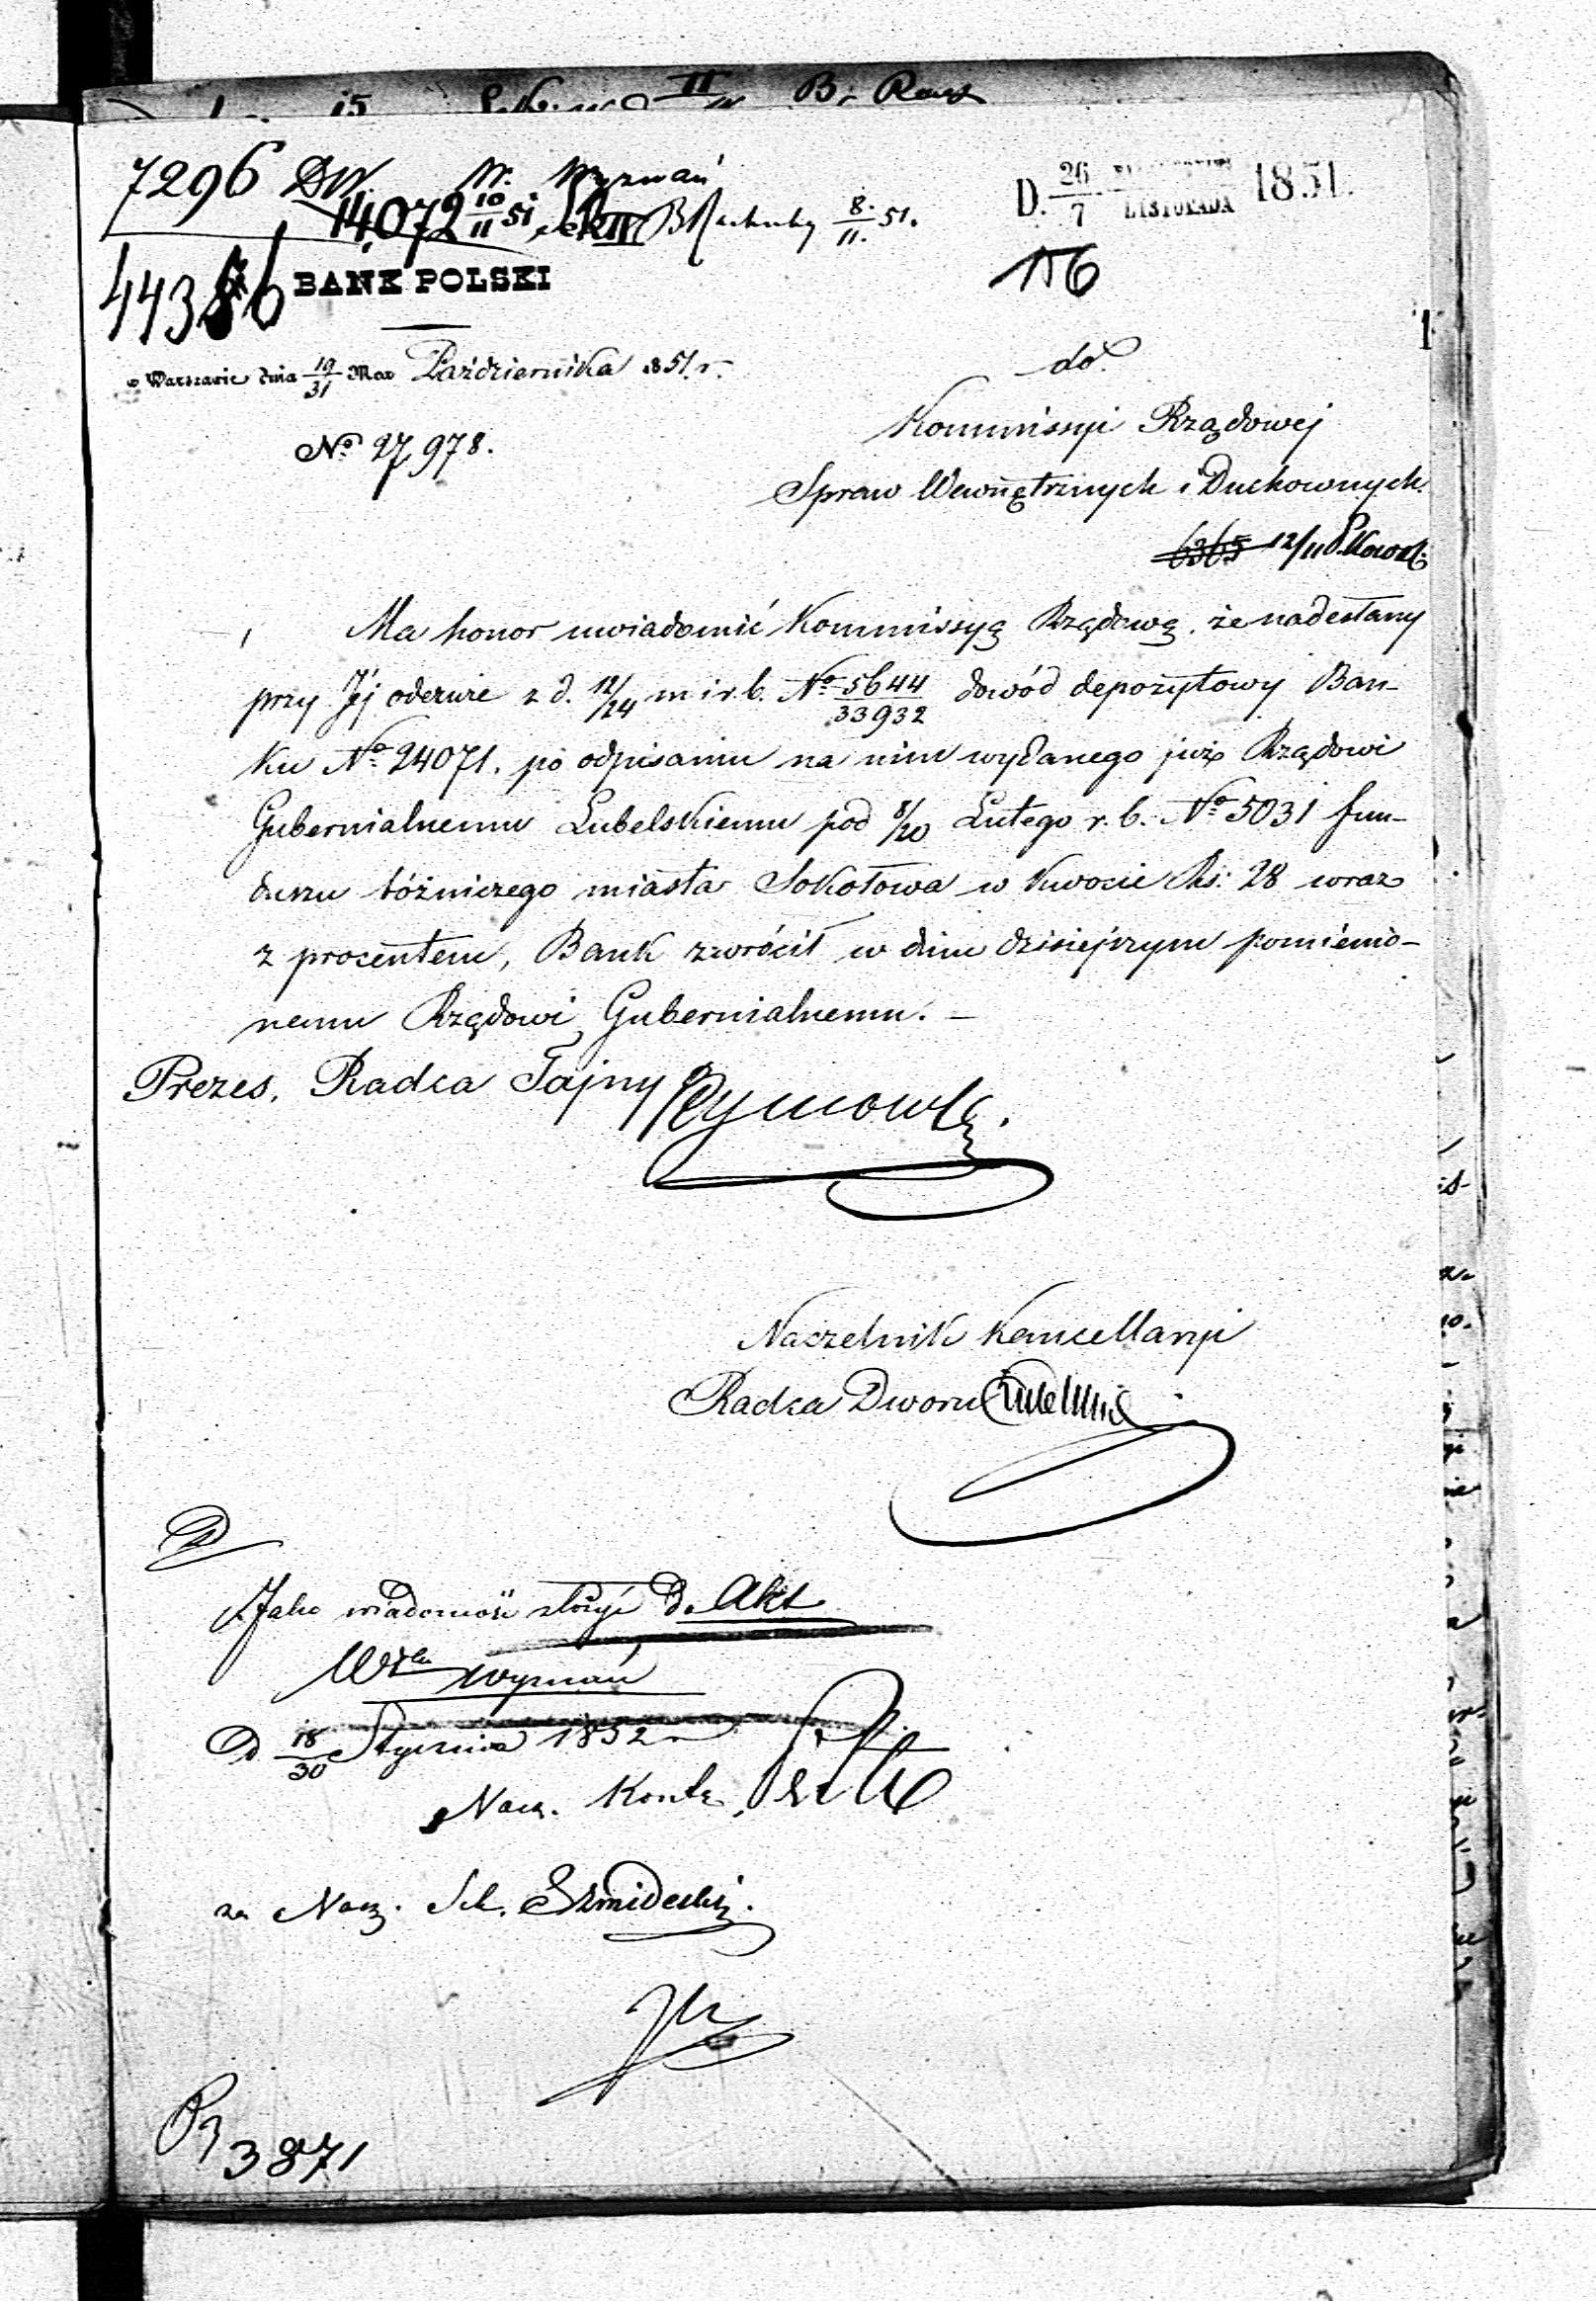 7296 DW W. Wyznań
14,072 10/11 51 Sek II B Rachuby 8./11. 51.
D. 26/7 LISTOPADA 1851.
44386
BANK POLSKI
156
w Warszawie dnia 19/31 Mca Października 1851. r.
do
No 27,978.
Kommissyi Rządowej
Spraw Wewnętrznych i Duchownych.
6365 12/11
Ma honor uwiadomić Kommissyą Rządową, że nadesłany
przy Jéj odezwie z d. 12/24 m i r. b. No 5644/33932 dowód depozytowy Ban-
ku No 24071. po odpisaniu na nim wydanego już Rządowi
Gubernialnemu Lubelskiemu pod 8/20 Lutego r. b. No 5031 fun-
duszu bóżniczego miasta Sokołowa w kwocie Rs: 28 wraz
z procentem, Bank zwrócił w dniu dzisiejszym pomienio-
nemu Rządowi Gubernialnemu. –
Prezes, Radca Tajny
Naczelnik Kancellaryi
Radca Dworu
Jako wiadomość złożyć do Akt
Wyznań
D 18/30 Stycznia 1852 r
Nacz. Kontr.
za Nacz. Sek. Szmidecki.
3871